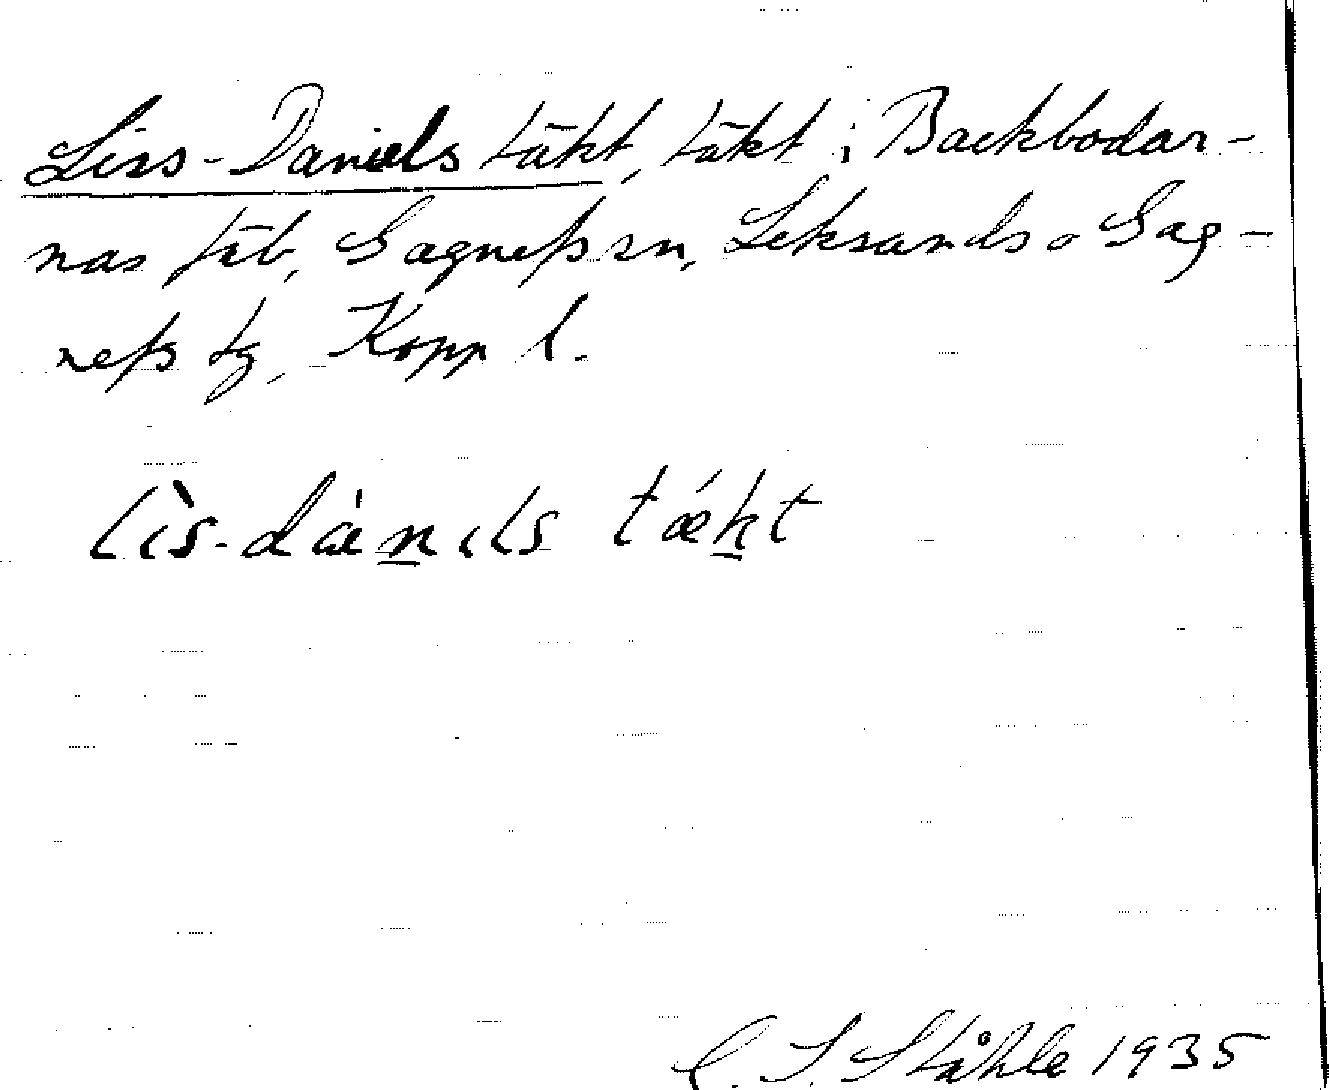 Liss-Daniels täkt, täkt i Backbodar-
nas fäb, Gagnefs sn, Leksands o Gag-
nefs tg, Kopp l.
lìs-dánıls tǽkt
C. I. Ståhle 1935